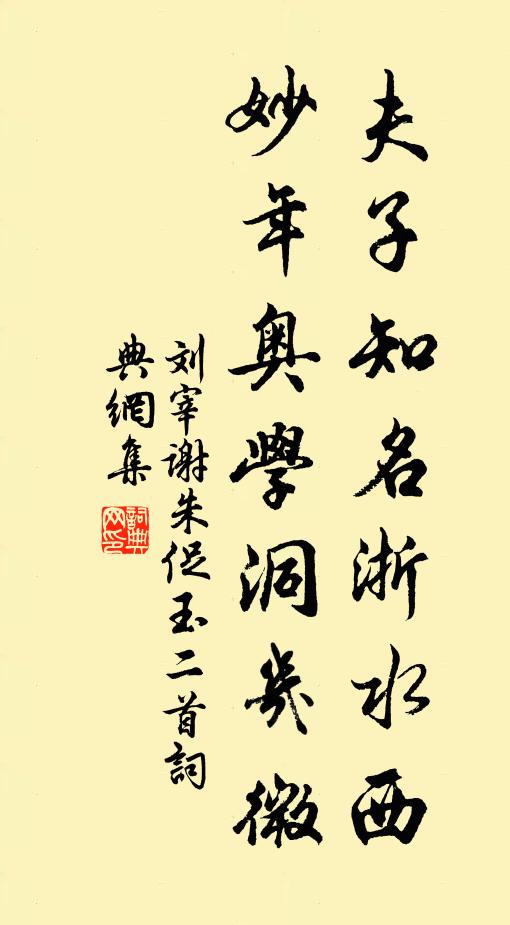 夫子知名浙水西
妙年奥學洞幾微
刘宰谢朱促玉二首詞
典網集
詞典
网印